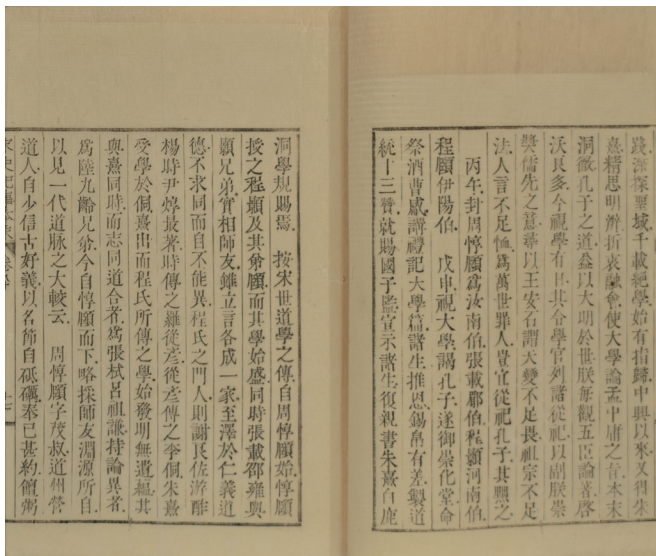 踐深探聖域千載絕學始有指歸中興以來又得朱
熹精思明辨折衷融會使大學論孟中庸之旨本末
洞徹孔子之道益以大明於世朕每觀五臣論著啓
沃良多今視學有日其令學官列諸從祀以副朕崇
奬儒先之意尋以王安石謂天變不足畏祖宗不足
法人言不足恤爲萬世罪人豈宜從祀孔子其黜之
丙午封周惇頤爲汝南伯張載郿伯程顥河南伯
程頤伊陽伯 戊申視大學謁孔子遂御崇化堂命
祭酒曹觱講禮記大學篇諸生推恩錫帛有差製道
統十三贊就賜國子監宣示諸生復親書朱熹白鹿
洞學規賜焉 按宋世道學之傳自周惇頤始惇頤
授之程顥及其弟頤而其學始盛同時張載邵雍與
顥兄弟實相師友雖立言各成一家至澤於仁義道
德不求同而自不能異程氏之門人則謝良佐游酢
楊時尹焞最著時傳之羅從彥從彥傳之李侗朱熹
受學於侗熹出而程氏所傳之學始發明無遺蘊其
與熹同時而志同道合者爲張栻呂祖謙持論異者
爲陸九齡兄弟今自惇頤而下略採師友淵源所自
以見一代道脉之大較云 周惇頤字茂叔道州營
道人自少信古好義以名節自砥礪奉己甚約簞粥